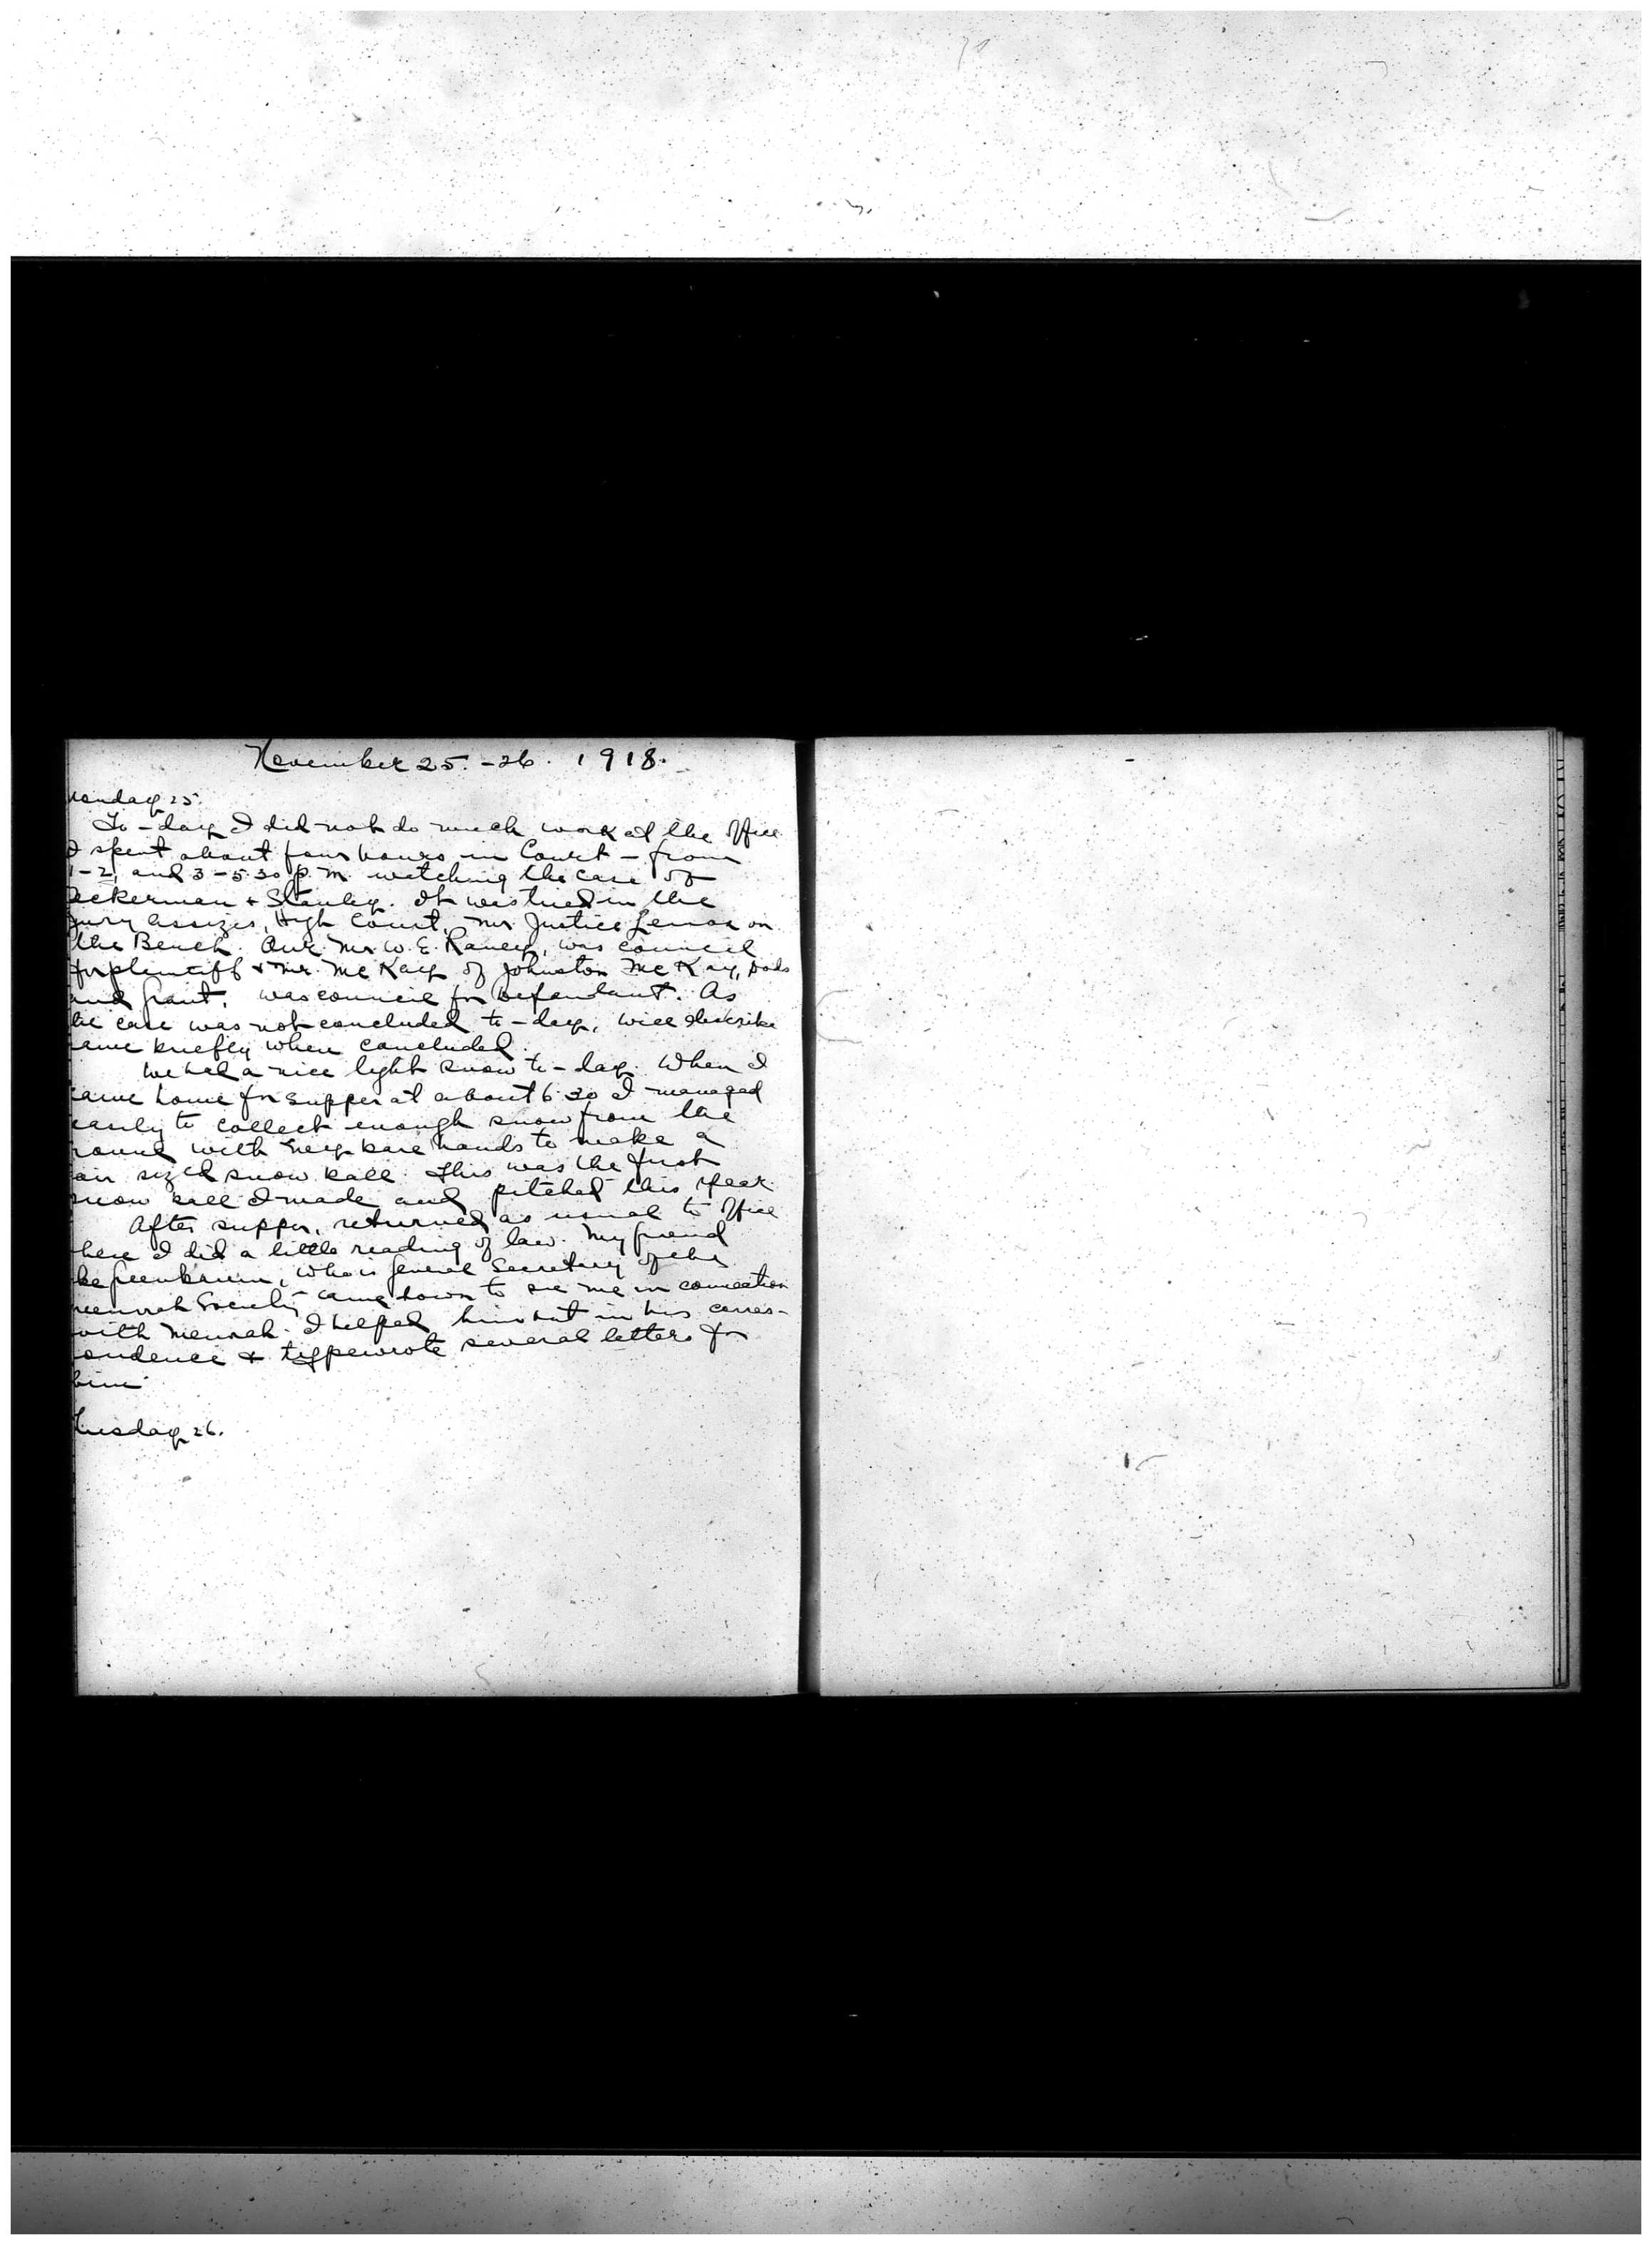 November 25. - 26. 1918.
Monday 25.
To-day I did not do much work at the Office
I spent about four hours in Court - from
1-2, and 3-5.30 p.m. watching the case of
eckerman + Stanley. It was tried in the
Jury Assizes, High Court, Mr. Justice Lennox on
the Bench. Our Mr. W. E. Raney, was council
for plentiff + Mr. McKay of Johnston McKay, Dods
and Grant, was council for Defendant. As
the case was not concluded to-day, will describe
same briefly when concluded.
We had a nice light snow to-day. When I
came home for supper at about 6.30 I managed
easily to collect enough snow from the
round with my bare hands to make a
air sized snow ball. This was the first
snow ball I made and pitched this year.
After supper, returned as usual to Office
here I did a little reading of law. My friend
ke Greenbaum, who is General Secretary of the
Menorah Society came down to see me in connection
with Menorah. I helped him out in his corres-
ondence + typewrote several letters for
him.
Tuesday 26.